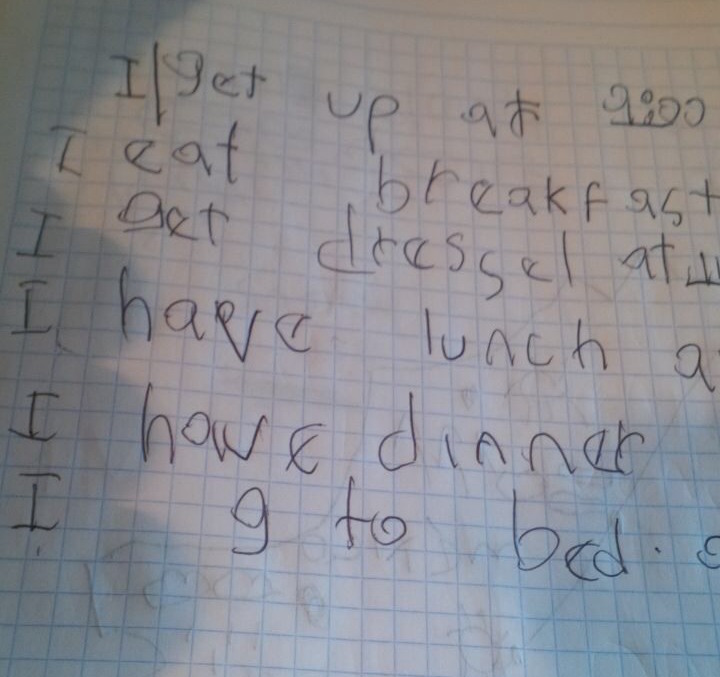 I get up at 9:00
I eat breakfast
I get dressed at
I have lunch a
I have dinner
I g to bed.